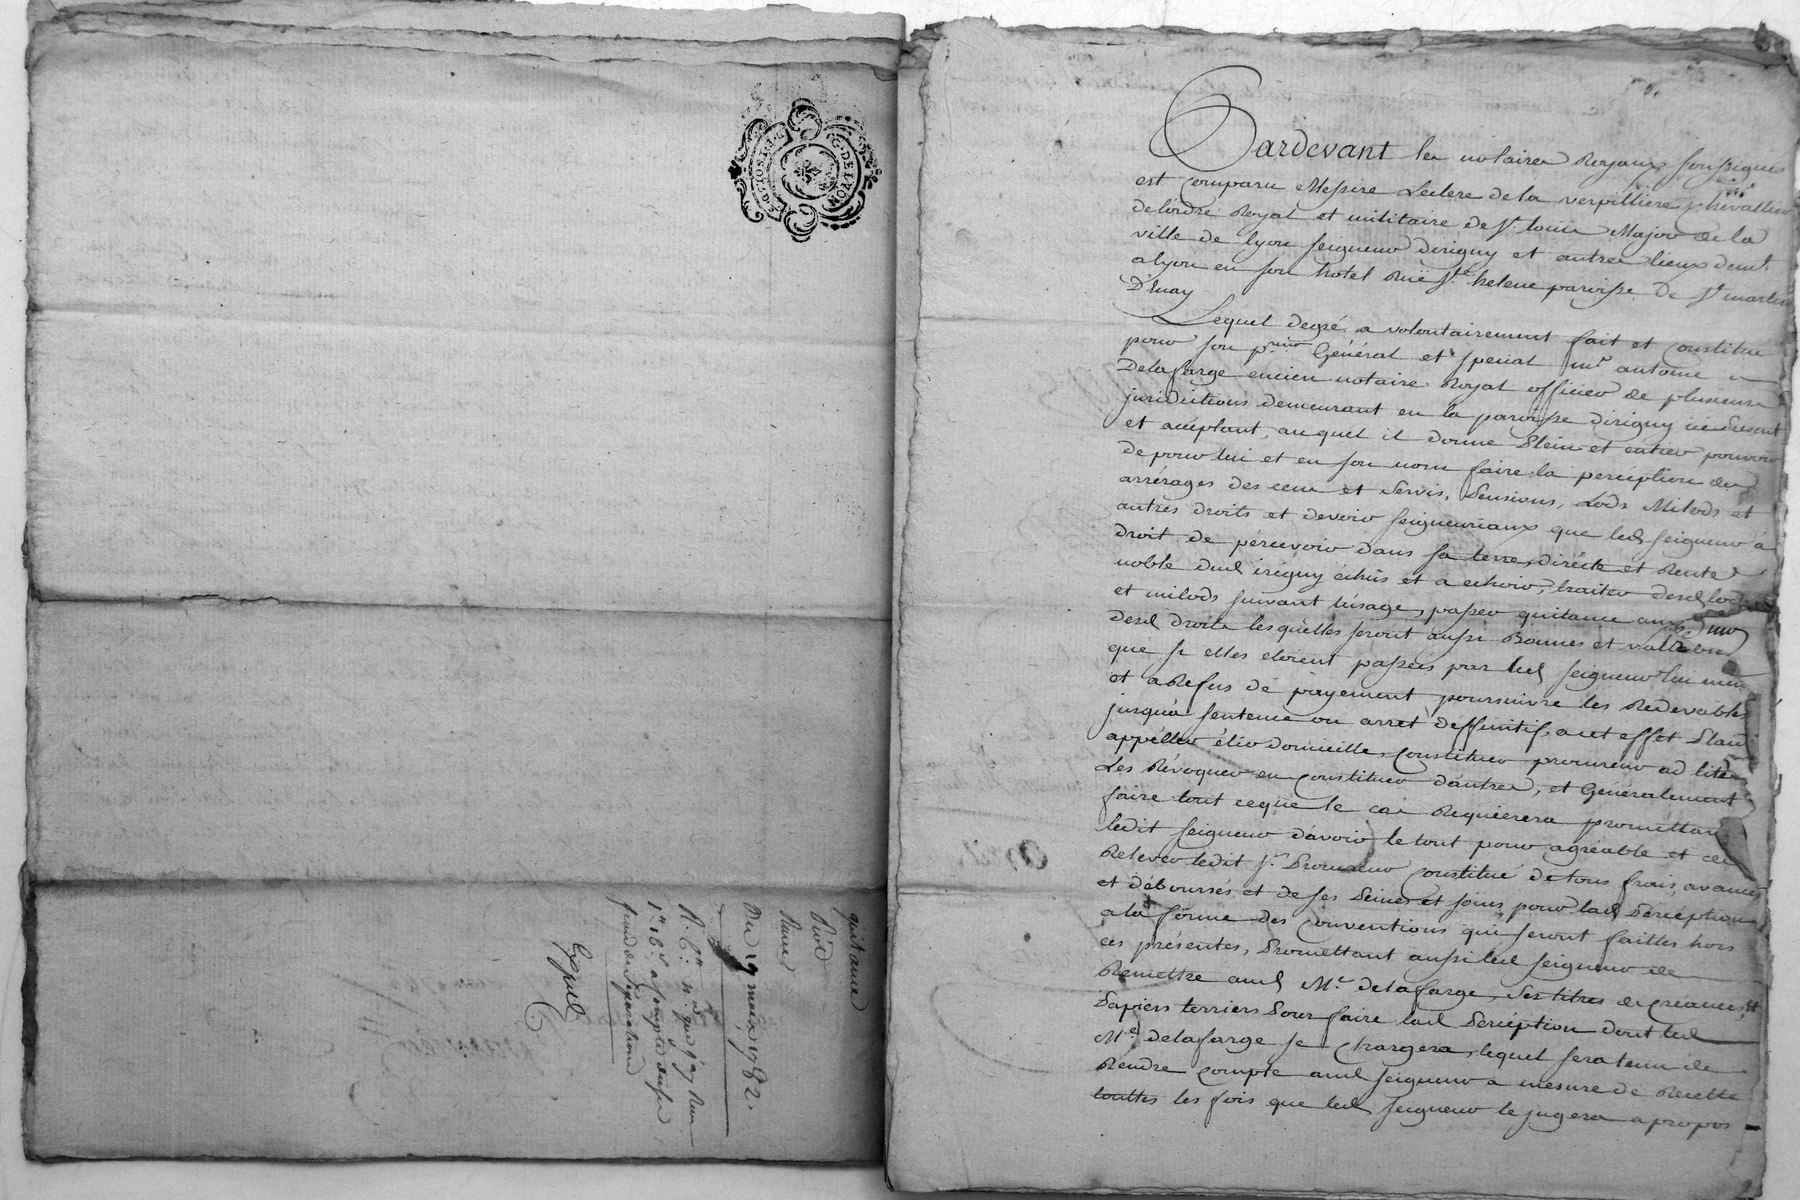 G. DE LYON
quitance
Piéd
Rance
Du 19 may 1782.
Expéd
Pardevant les notaires Royaux soussignés
est comparu Messire Leclerc de la verpilliere Chevallier
de l'ordre Royal et militaire de St. louis Major de la
ville de lyon seigneur d'irigny et autres lieux demt.
a lyon en son hotel Rüe Ste. helene paroisse De St martin
D'Enay
Lequel degré a volontairement fait et Constitué
pour son preur Général et spécial me antoine
Delafarge encien notaire Royal officier de plusieurs
juridictions demeurant en la paroisse d'irigny ici présent
et acéptant, auquel il donne Plein et entier pouvoir
de pour lui et en son nom faire la percéption des
arrérages des cens et servis, Pensions, Lods Milods et
autres droits et devoirs seigneuriaux que led seigneur à
droit de percevoir dans sa terre, dirécte et Rente
noble dud irigny échûs et a echoir, traiter desd lods
et milods suivant lusage, passer quitance aux
desd droits lesquelles seront aussi Bonnes et vallables
que si elles etoient passées par led seigneur lui meme
et a Refus de payement poursuivre les Redevables
jusqu'a sentence ou arret deffinitif, a cet effet Plaid
appeller élir domicille, Constituer procureur ad lites
Les Révoquer en Constituer d'autres, et Généralement
faire tout ceque le cas Requierera promettant
ledit seigneur d'avoir le tout pour agréable et de
Relever ledit sr. Procureur Constitué de tous frais, avances
et déboursés et de ses Peines et soins pour lad Percéption
a la forme des Conventions qui seront faittes hors
ces présentes, Promettant aussi led seigneur de
Remettre aud Me. delafarge, ses titres de Créances, et
Papiers terriers Pour faire lad Percéption dont led
Me. delafarge se chargera, lequel sera tenu de
Rendre Compte aud seigneur a mesure de Recette
touttes les fois que led seigneur le jugera a propos